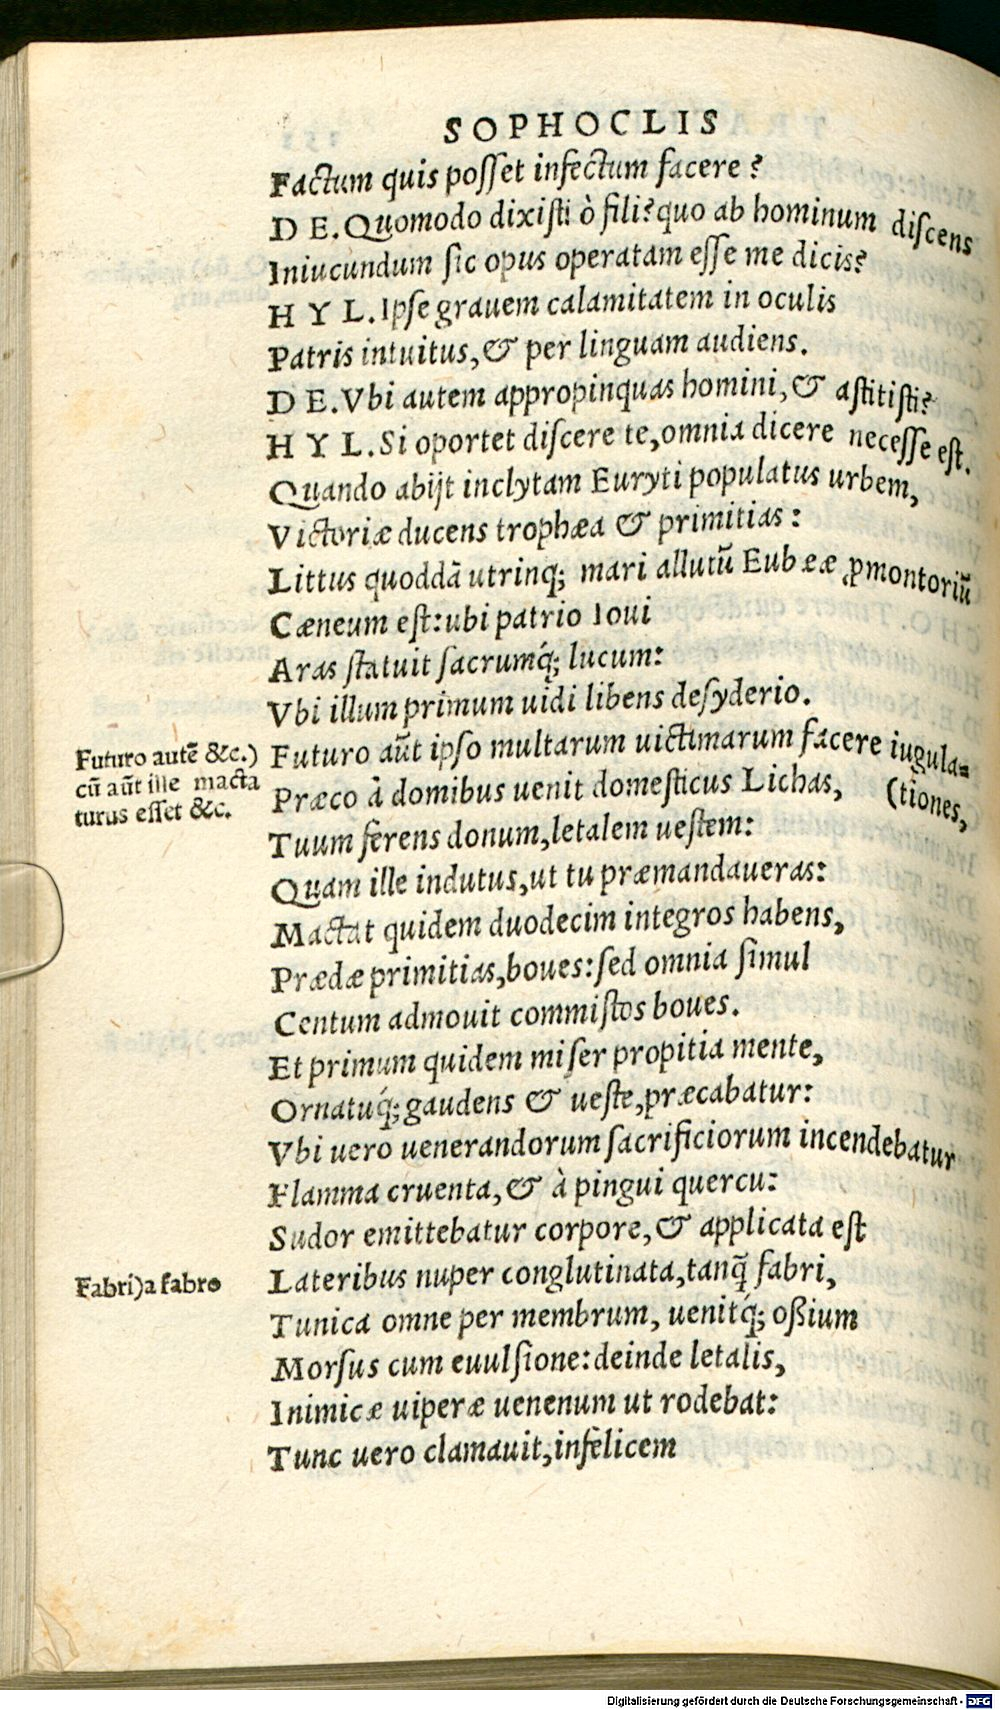 SOPHOCLIS
Factum quis posset infectum facere?
DE. Quomodo dixisti ò fili? quo ab hominum discens
Iniucundum sic opus operatam esse me dicis?
HYL. Ipse grauem calamitatem in oculis
Patris intuitus, & per linguam audiens.
DE. Vbi autem appropinquas homini, & astitisti?
HYL. Si oportet discere te, omnia dicere necesse est.
Quando abijt inclytam Euryti populatus urbem,
Victoriæ ducens trophæa & primitias:
Littus quoddã utrinq; mari allutũ Eubææ ꝓmontoriũ
Cæneum est: ubi patrio Ioui
Aras statuit sacrumq́; lucum:
Vbi illum primum uidi libens desyderio.
Futuro autẽ &c.)
cũ aũt ille macta
turus esset &c.
Futuro aũt ipso multarum uictimarum facere iugula=
Præco à domibus uenit domesticus Lichas, (tiones,
Tuum ferens donum, letalem uestem:
Quam ille indutus, ut tu præmandaueras:
Mactat quidem duodecim integros habens,
Prædæ primitias, boues: sed omnia simul
Centum admouit commistos boues.
Et primum quidem miser propitia mente,
Ornatuq́; gaudens & ueste, præcabatur:
Vbi uero uenerandorum sacrificiorum incendebatur
Flamma cruenta, & à pingui quercu:
Sudor emittebatur corpore, & applicata est
Fabri) a fabro
Lateribus nuper conglutinata, tanq̃ fabri,
Tunica omne per membrum, uenitq́; oßium
Morsus cum euulsione: deinde letalis,
Inimicæ uiperæ uenenum ut rodebat:
Tunc uero clamauit, infelicem
Digitalisierung gefördert durch die Deutsche Forschungsgemeinschaft - DFG